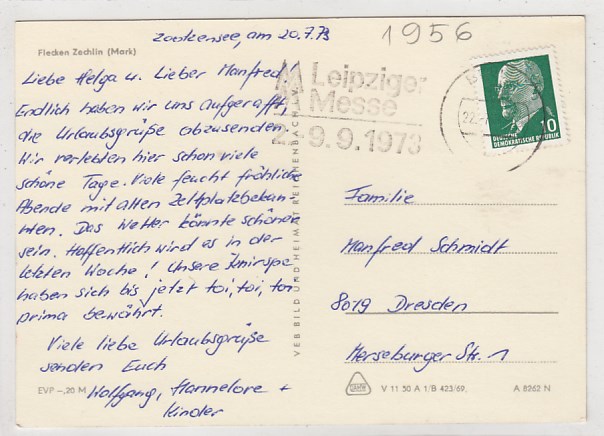 1956
Zootzensee, am 20.7.73
Flecken Zechlin (Mark)
Liebe Helga u. Lieber Manfred!
Endlich haben wir uns aufgerafft
die Urlaubsgrüße abzusenden.
Wir verlebten hier schon viele
schöne Tage. Viele feucht fröhliche
Abende mit alten Zeltplatzbekan-
nten. Das Wetter könnte schöner
sein. Hoffentlich wird es in der
letzten Woche! Unsere Knirpse
haben sich bis jetzt toi, toi, toi
prima bewährt.
Viele liebe Urlaubsgrüße
senden Euch
Wolfgang, Hannelore +
Kinder
EVP -,20 M
VEB BILD UND HEIMAT REICHENBACH
MM Leipziger
Messe
9.9.1973
22.
10
DEUTSCHE
DEMOKRATISCHE REPUBLIK
Familie
Manfred Schmidt
8019 Dresden
Merseburger Str. 1
V 11 50 A 1/B 423/69,
A 8262 N